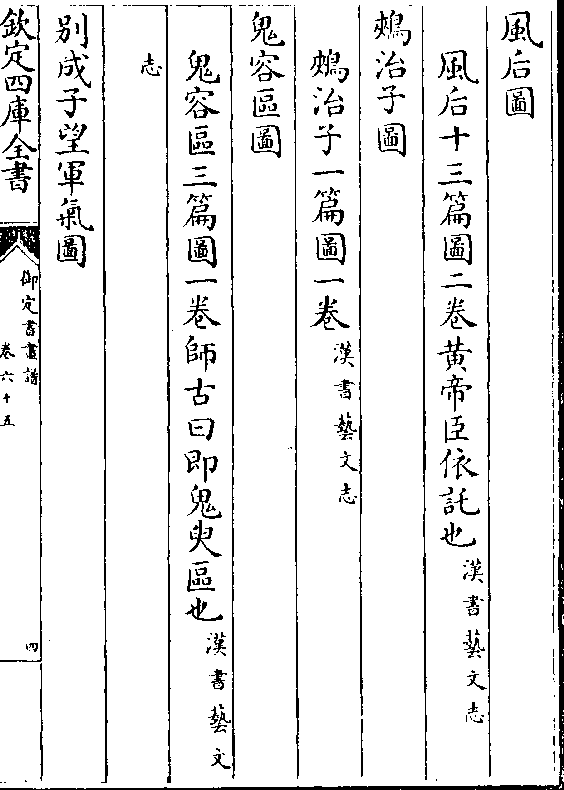 風后圖
風后十三篇圖二卷黄帝臣依託也漢書藝文志
鵊治子圖
鵊治子一篇圖一卷漢書藝文志
鬼容區圖
鬼容區三篇圖一卷師古曰即鬼臾區也漢書藝文
志
别成子望軍氣圖
欽定四庫全書
御定書畫譜
卷六十五
四